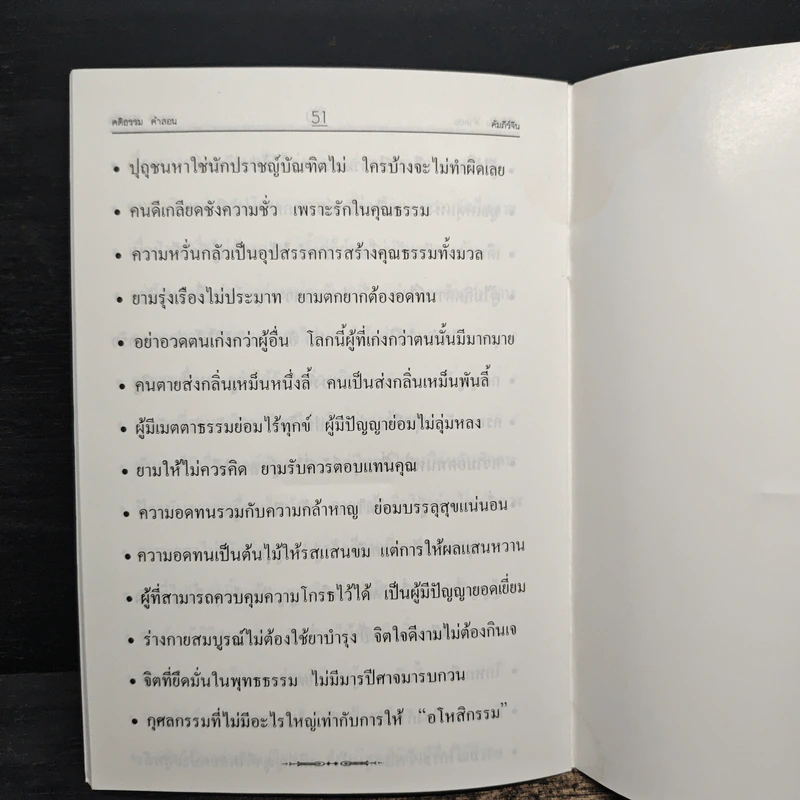 คติธรรม คำสอน 51 คัมภีร์จีน
• ปุถุชนหาใช่นักปราชญ์บัณฑิตไม่ ใครบ้างจะไม่ทำผิดเลย
• คนดีเกลียดชังความชั่ว เพราะรักในคุณธรรม
• ความหวั่นกลัวเป็นอุปสรรคการสร้างคุณธรรมทั้งมวล
• ยามรุ่งเรืองไม่ประมาท ยามตกยากต้องอดทน
• อย่าอวดตนเก่งกว่าผู้อื่น โลกนี้ผู้ที่เก่งกว่าตนนั้นมีมากมาย
• คนตายส่งกลิ่นเหม็นหนึ่งลี้ คนเป็นส่งกลิ่นเหม็นพันลี้
• ผู้มีเมตตาธรรมย่อมไร้ทุกข์ ผู้มีปัญญาย่อมไม่ลุ่มหลง
• ยามให้ไม่ควรคิด ยามรับควรตอบแทนคุณ
• ความอดทนรวมกับความกล้าหาญ ย่อมบรรลุสุขแน่นอน
• ความอดทนเป็นต้นไม้ให้รสแสนขม แต่การให้ผลแสนหวาน
• ผู้ที่สามารถควบคุมความโกรธไว้ได้ เป็นผู้มีปัญญายอดเยี่ยม
• ร่างกายสมบูรณ์ไม่ต้องใช้ยาบำรุง จิตใจดีงามไม่ต้องกินเจ
• จิตที่ยึดมั่นในพุทธธรรม ไม่มีมารปีศาจมารบกวน
• กุศลกรรมที่ไม่มีอะไรใหญ่เท่ากับการให้ “อโหสิกรรม”